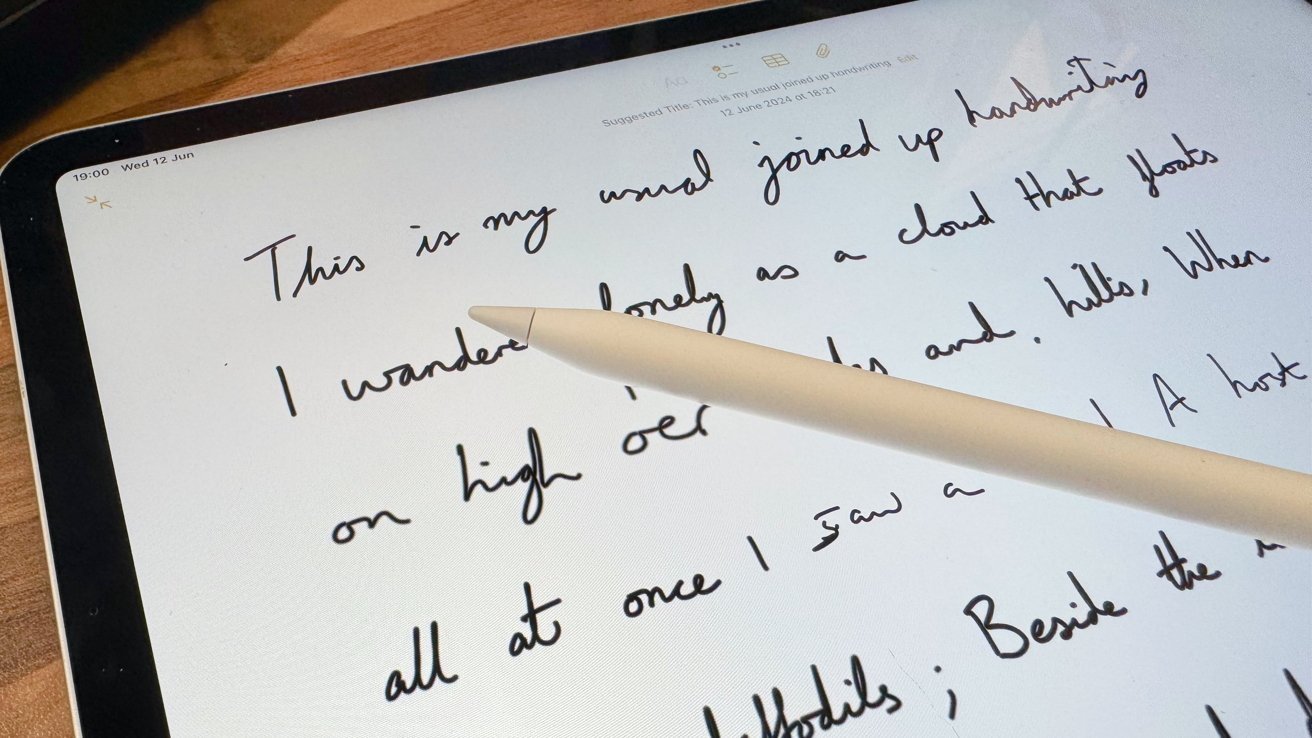 19:00 Wed 12 Jun
Aa
Suggested Title: This is my usual joined up handwriting Edit
12 June 2024 at 18:21
This is my usual joined up handwriting
I wandere lonely as a cloud that floats
on high o'er and. hills, When
all at once I saw a A host
daffodils; Beside the